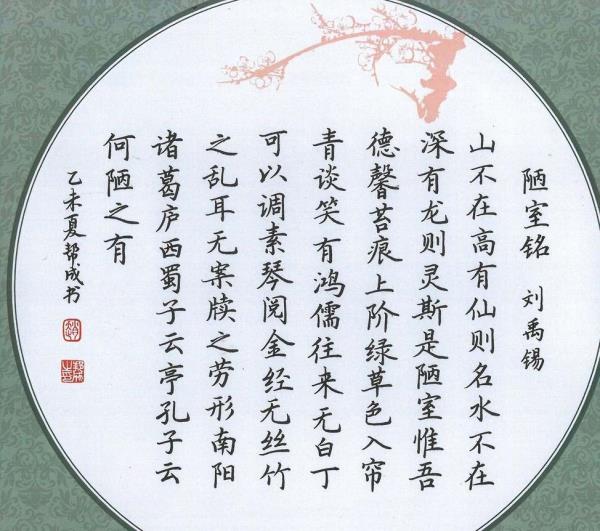 陋室铭 刘禹锡
山不在高有仙则名水不在
深有龙则灵斯是陋室惟吾
德馨苔痕上阶绿草色入帘
青谈笑有鸿儒往来无白丁
可以调素琴阅金经无丝竹
之乱耳无案牍之劳形南阳
诸葛庐西蜀子云亭孔子云
何陋之有
乙未夏帮成书